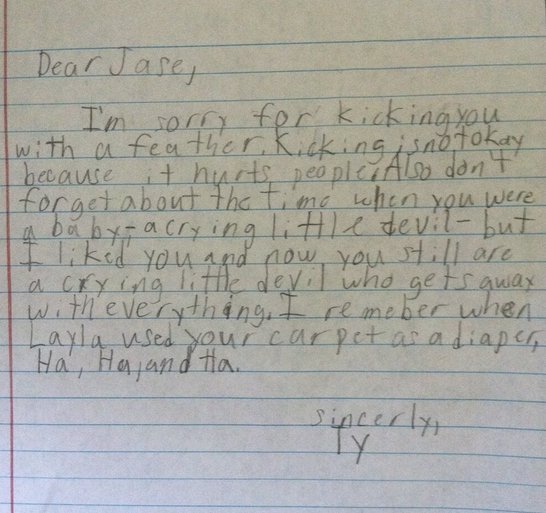 Dear Jase,
I'm sorry for kicking you
with a feather. Kicking is not okay
because it hurts people. Also don't
forget about the time when you were
a baby - a crying little devil - but
I liked you and now you still are
a crying little devil who gets away
with everything. I remeber when
Layla used your carpet as a diaper,
Ha, Ha, and Ha.
sincerly,
Ty